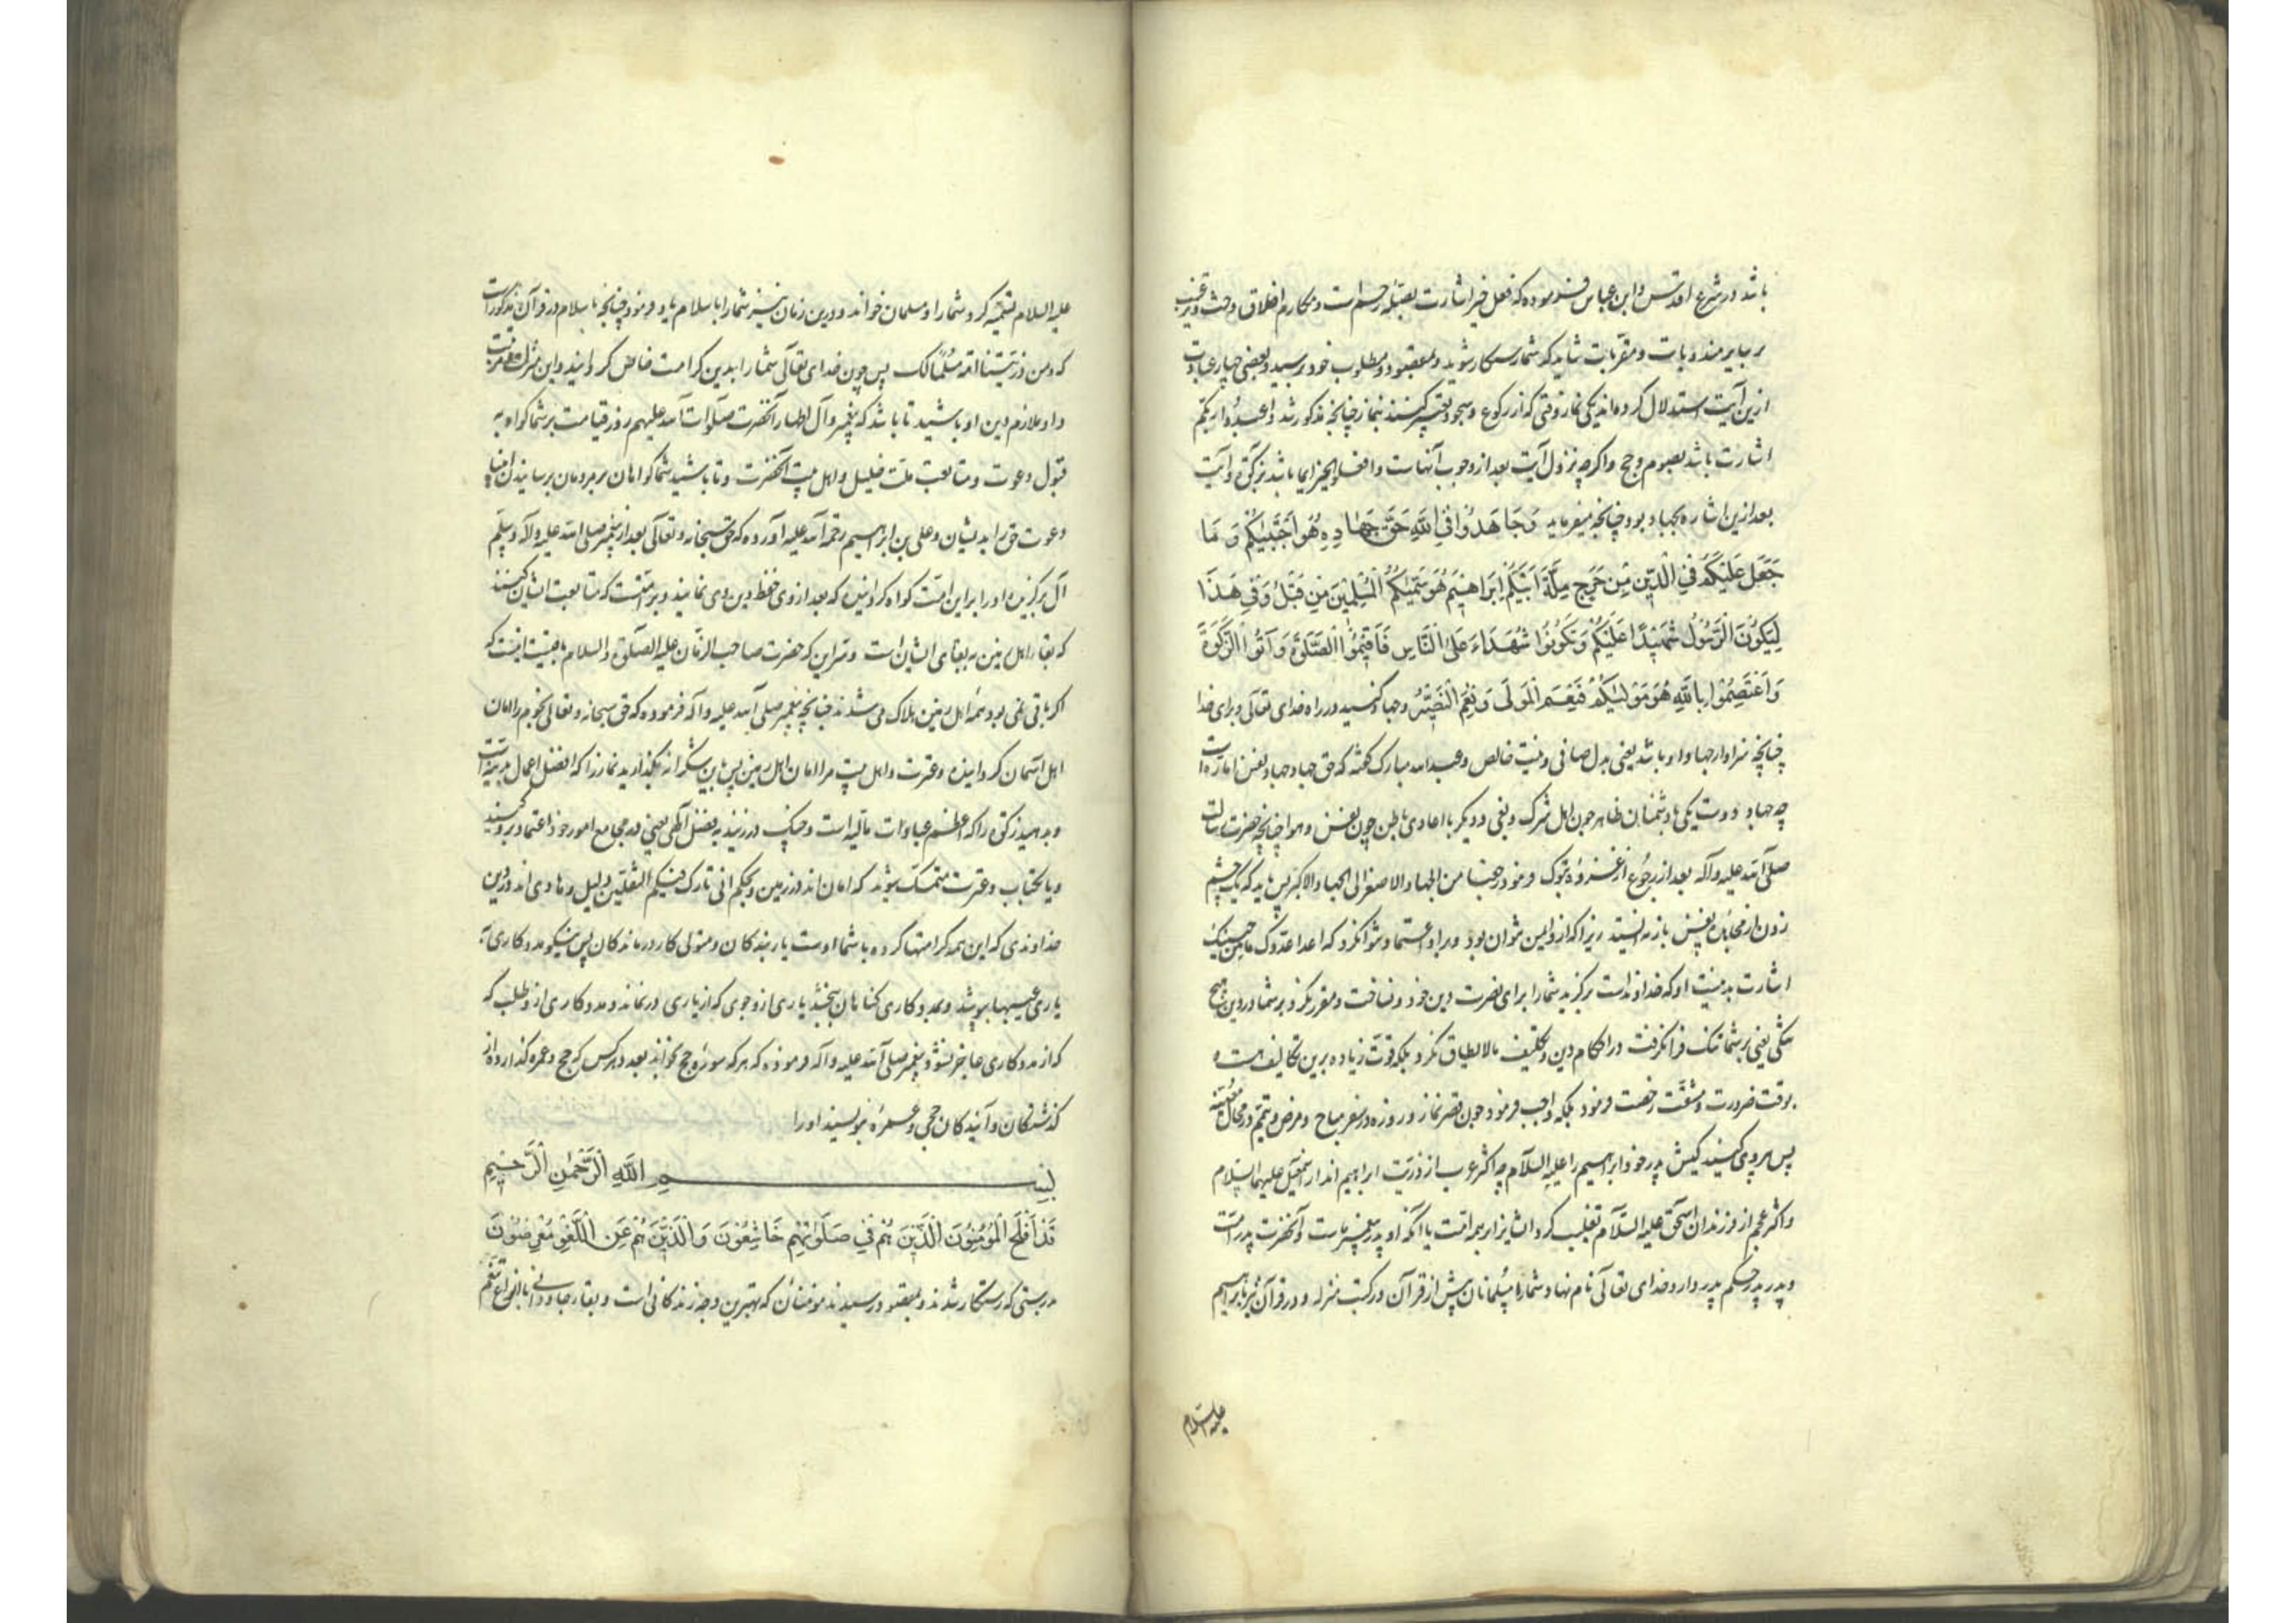 باشد در شرع اقدس و ابن عباس فرموده که فعل خیر اشارت بصلهٔ رحم است و مکارم اخلاق و حث و ترغیب
بر سایر مندوبات و مقربات شاید که شما رستکار شوید و بمقصود و مطلوب خود برسید و بعضی چهار عبادت
ازین آیت استدلال کرده‌اند یکی نماز وقتی که از رکوع و سجود تعبیر کنند بنماز چنانچه مذکور شد و اعبدوا ربکم
اشارت باشد بصوم و حج و اکرچه نزول آیت بعد از وجوب آنهاست و افعلوا الخیر ایما باشد بزکوة و آیت
بعد ازین اشاره بجهاد بود چنانچه میفرماید وَجَاهَدُوا فِي اللَّهِ حَقَّ جِهَادِهِ هُوَ اجْتَبٰيكُمْ وَمَا
جَعَلَ عَلَيْكُمْ فِي الدِّينِ مِنْ حَرَجٍ مِلَّةَ أَبِيكُمْ إِبْرَاهِيمَ هُوَ سَمّٰيكُمُ الْمُسْلِمِينَ مِنْ قَبْلُ وَفِي هَذَا
لِيَكُونَ الرَّسُولُ شَهِيدًا عَلَيْكُمْ وَتَكُونُوا شُهَدَاءَ عَلَى النَّاسِ فَأَقِيمُوا الصَّلَوةَ وَآتُوا الزَّكَوةَ
وَاعْتَصِمُوا بِاللَّهِ هُوَ مَوْلٰيكُمْ فَنِعْمَ الْمَوْلَى وَنِعْمَ النَّصِيرُ و جهاد کنید در راه خدای تعالی و برای خدا
چنانچه سزاوار جهاد او باشد یعنی بدل صافی و نیت خالص و عبدالله مبارک کفته که حق جهاد جهاد نفس اماره است
چه جهاد دوست یکی با دشمنان ظاهر چون اهل شرک و بغی و دیکر با اعادی باطن چون نفس و هوا چنانچه حضرت رسالت
صلی الله علیه و آله بعد از رجوع از غزوهٔ تبوک فرمود رجعنا من الجهاد الاصغر الی الجهاد الاکبر پس باید که یک چشم
زدن از مجاهدهٔ نفس باز نه ایستید زیرا که ازو ایمن نتوان بود و بر او اعتماد نتوان کرد که اعدا عدوک ما بین جنبیک
اشارت بدینست او که خداوندست برکزید شما را برای نصرت دین خود و نساخت و مقرر نکرد بر شما در دین هیچ
تنکی یعنی بر شما تنک فرا نکرفت در احکام دین و تکلیف مالا یطاق نکرد بلکه قوت زیاده برین تکالیف است و
بوقت ضرورت و مشقت رخصت فرمود بلکه واجب فرمود چون قصر نماز و روزه در سفر مباح و مرض و تیمم در محال معینه
پس پیروی کنید کیش پدر خود ابراهیم را علیه السلام چه اکثر عرب از ذریت ابراهیم اند از اسمعیل علیهما السلام
و اکثر عجم از فرزندان اسحق علیه السلام تغلیب کرد ایشانرا بر همه امت یا آنکه او پدر پیغمبر ماست و آنحضرت پدر امت
و پدر پدر حکم پدر دارد خدای تعالی نام نهاد شما را مسلمانان پیش از قرآن در کتب منزله و در قرآن نیز یا ابراهیم
علیه السلام
علیه السلام تسمیه کرد و شما را او مسلمان خواند و درین زمان نیز شما را با سلام یاد فرمود چنانچه با سلام در قرآن مذکور است
که و من ذریتنا امة مسلمة لک پس چون خدای تعالی شما را بدین کرامت خاص کردانید و این منزلت
داد ملازم دین او باشید تا باشد که پیغمبر و آل اطهار آنحضرت صلوات الله علیهم روز قیامت بر شما کواه به
قبول دعوت و متابعت ملت خلیل و اهل بیت آنحضرت و تا باشید شما کواهان بر مردمان برسانیدن انبیا
دعوت حق را بدیشان و علی بن ابراهیم رحمة الله علیه آورده که حق سبحانه و تعالی بعد از پیغمبر صلی الله علیه و آله و سلم
آل برکزیدهٔ او را بر این امت کواه کردانیده که بعد از وی حفظ دین وی نمایند و بر امتست که متابعت ایشان کنند
که بقای اهل زمین به بقای ایشان است و سر این که حضرت صاحب الزمان علیه الصلوة و السلام باقیست اینست که
اکر باقی نمی بود همه اهل زمین هلاک می شدند چنانچه پیغمبر صلی الله علیه و آله فرموده که حق سبحانه و تعالی نجوم را امان
اهل آسمان کردانیده و عترت و اهل بیت مرا امان اهل زمین پس باین شکرانه بکذارید نماز را که افضل اعمال بدنیه است
و بدهید زکوة را که اعظم عبادات مالیه است و چنک در زنید به فضل الهی یعنی در مجامع امور خود اعتماد برو کنید
و یا بکتاب و عترت متمسک شوید که امان اند در زمین و بحکم انی تارک فیکم الثقلین دلیل و هادی اند در دین
خداوندی که این همه کرامتها کرده با شما اوست یار بندکان و متولی کار درماندکان پس نیکو مددکاری که
یاری عیبها بپوشد و بمددکاری کناهان ببخشد یاری ازو جوی که از یاری درنماند و مددکاری ازو طلب که
که از مددکاری عاجز نشود پیغمبر صلی الله علیه و آله فرموده که هر که سورهٔ حج بخواند بعدد هر کس که حج و عمره کذارده از
کذشتکان و آیندکان حجی و عمرهٔ بنویسند او را
بِسْمِ اللَّهِ الرَّحْمٰنِ الرَّحِيمِ
قَدْ أَفْلَحَ الْمُؤْمِنُونَ الَّذِينَ هُمْ فِي صَلَوتِهِمْ خَاشِعُونَ وَالَّذِينَ هُمْ عَنِ اللَّغْوِ مُعْرِضُونَ
بدرستی که رستکار شدند و بمقصود رسیدند مومنان که بهترین وجه زندکانی است و بقاء جاودانی با انواع نعم